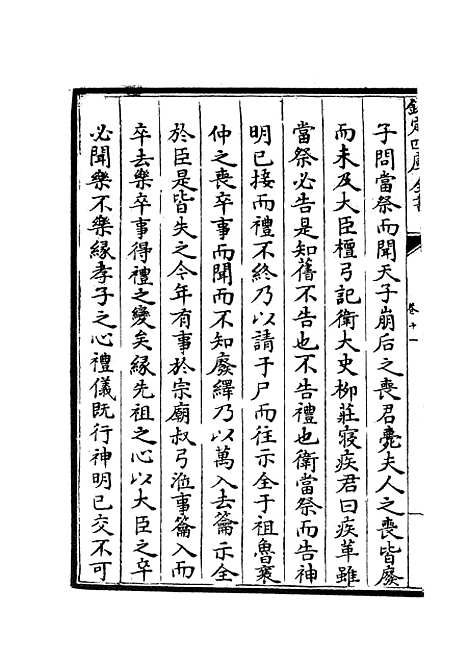 子問當祭而聞天子崩后之喪君薨夫人之喪皆廢
而未及大臣檀弓記衛大史柳莊寢疾君曰疾革雖
當祭必告是知舊不告也不告禮也衛當祭而告神
明已接而禮不終乃以請于尸而往示全于祖魯襄
仲之喪卒事而聞而不知廢繹乃以萬入去籥示全
於臣是皆失之今年有事於宗廟叔弓涖事籥入而
卒去樂卒事得禮之變矣緣先祖之心以大臣之卒
必聞樂不樂緣孝子之心禮儀既行神明已交不可